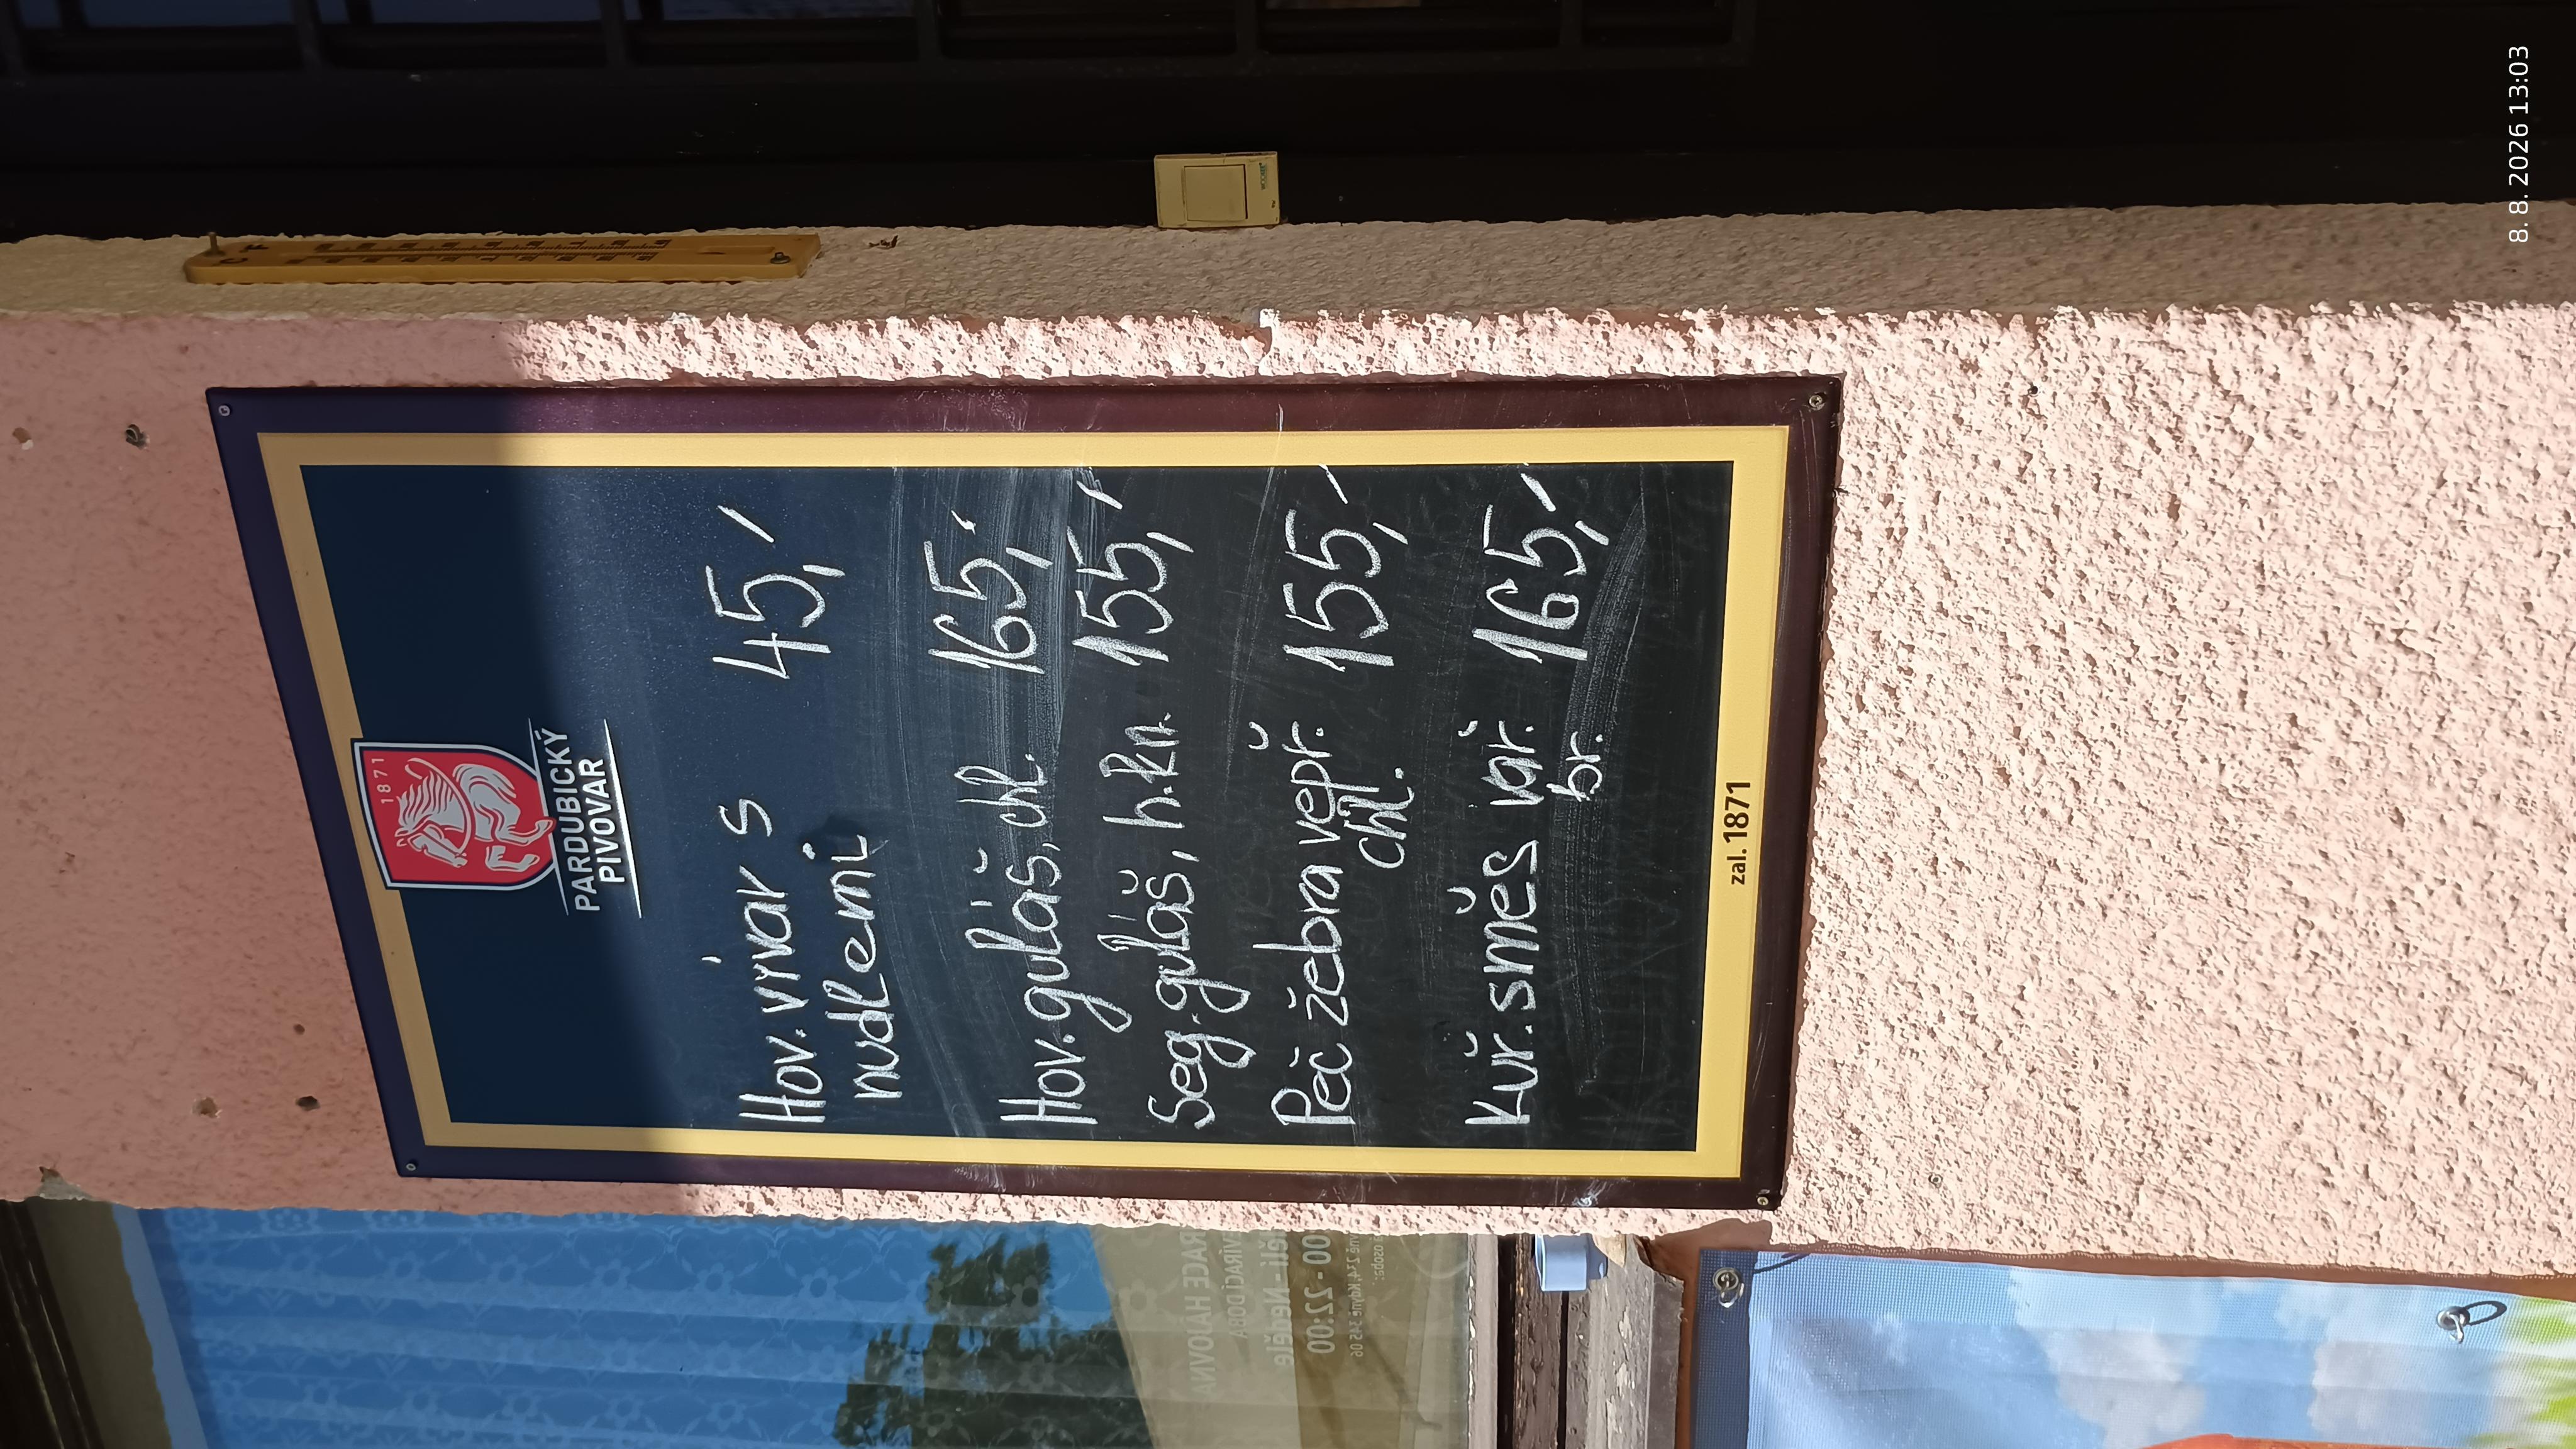 1871
PARDUBICKÝ
PIVOVAR
Hov. vývar s 45,-
nudlemi
Hov. guláš, chl. 165,-
Seg. guláš, h.kn. 155,-
Peč žebra vepř. 155,-
chl.
Kuř. směs vař. 165,-
br.
zal. 1871
RACE HÁJOVNA
VÍRACÍ DOBA
ělí - Neděle
00 - 22:00
8. 8. 2026 13:03